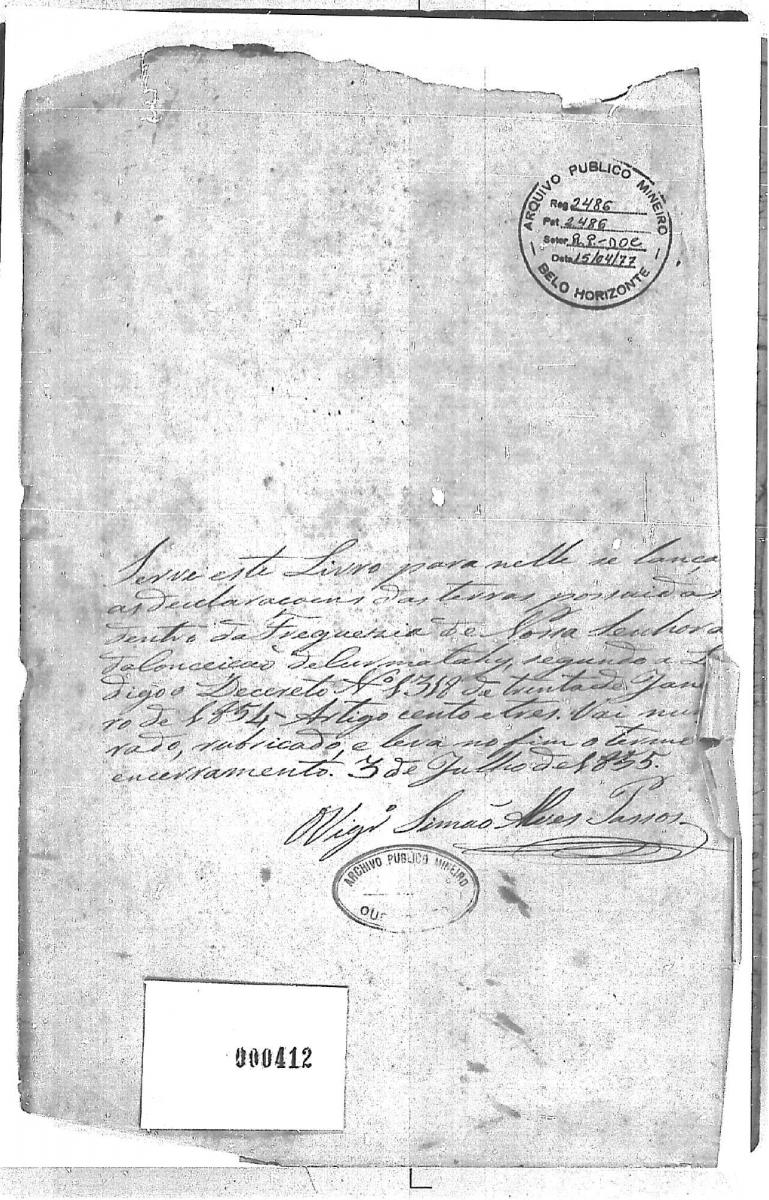 ARQUIVO PUBLICO MINEIRO
Reg 2486
Pat 2486
Setor R.P-DOC
Data 15/04/77
BELO HORIZONTE
Serve este Livro para nelle se lança
as declaraçoens das terras possuidas
dentro da Freguezia de Nossa Senhora
da Conceição de Curmatahy, segundo a L
digo o Decreto Nº 1318 de trinta de Jan
ro de 1854 - Artigo cento e tres. Vai nu
rado, rubricado, e leva no fim o termo
encerramento. 3 de Julho de 1855.
O Vigrº Simão Alves Passos
ARCHIVO PUBLICO MINEIRO
OU
000412